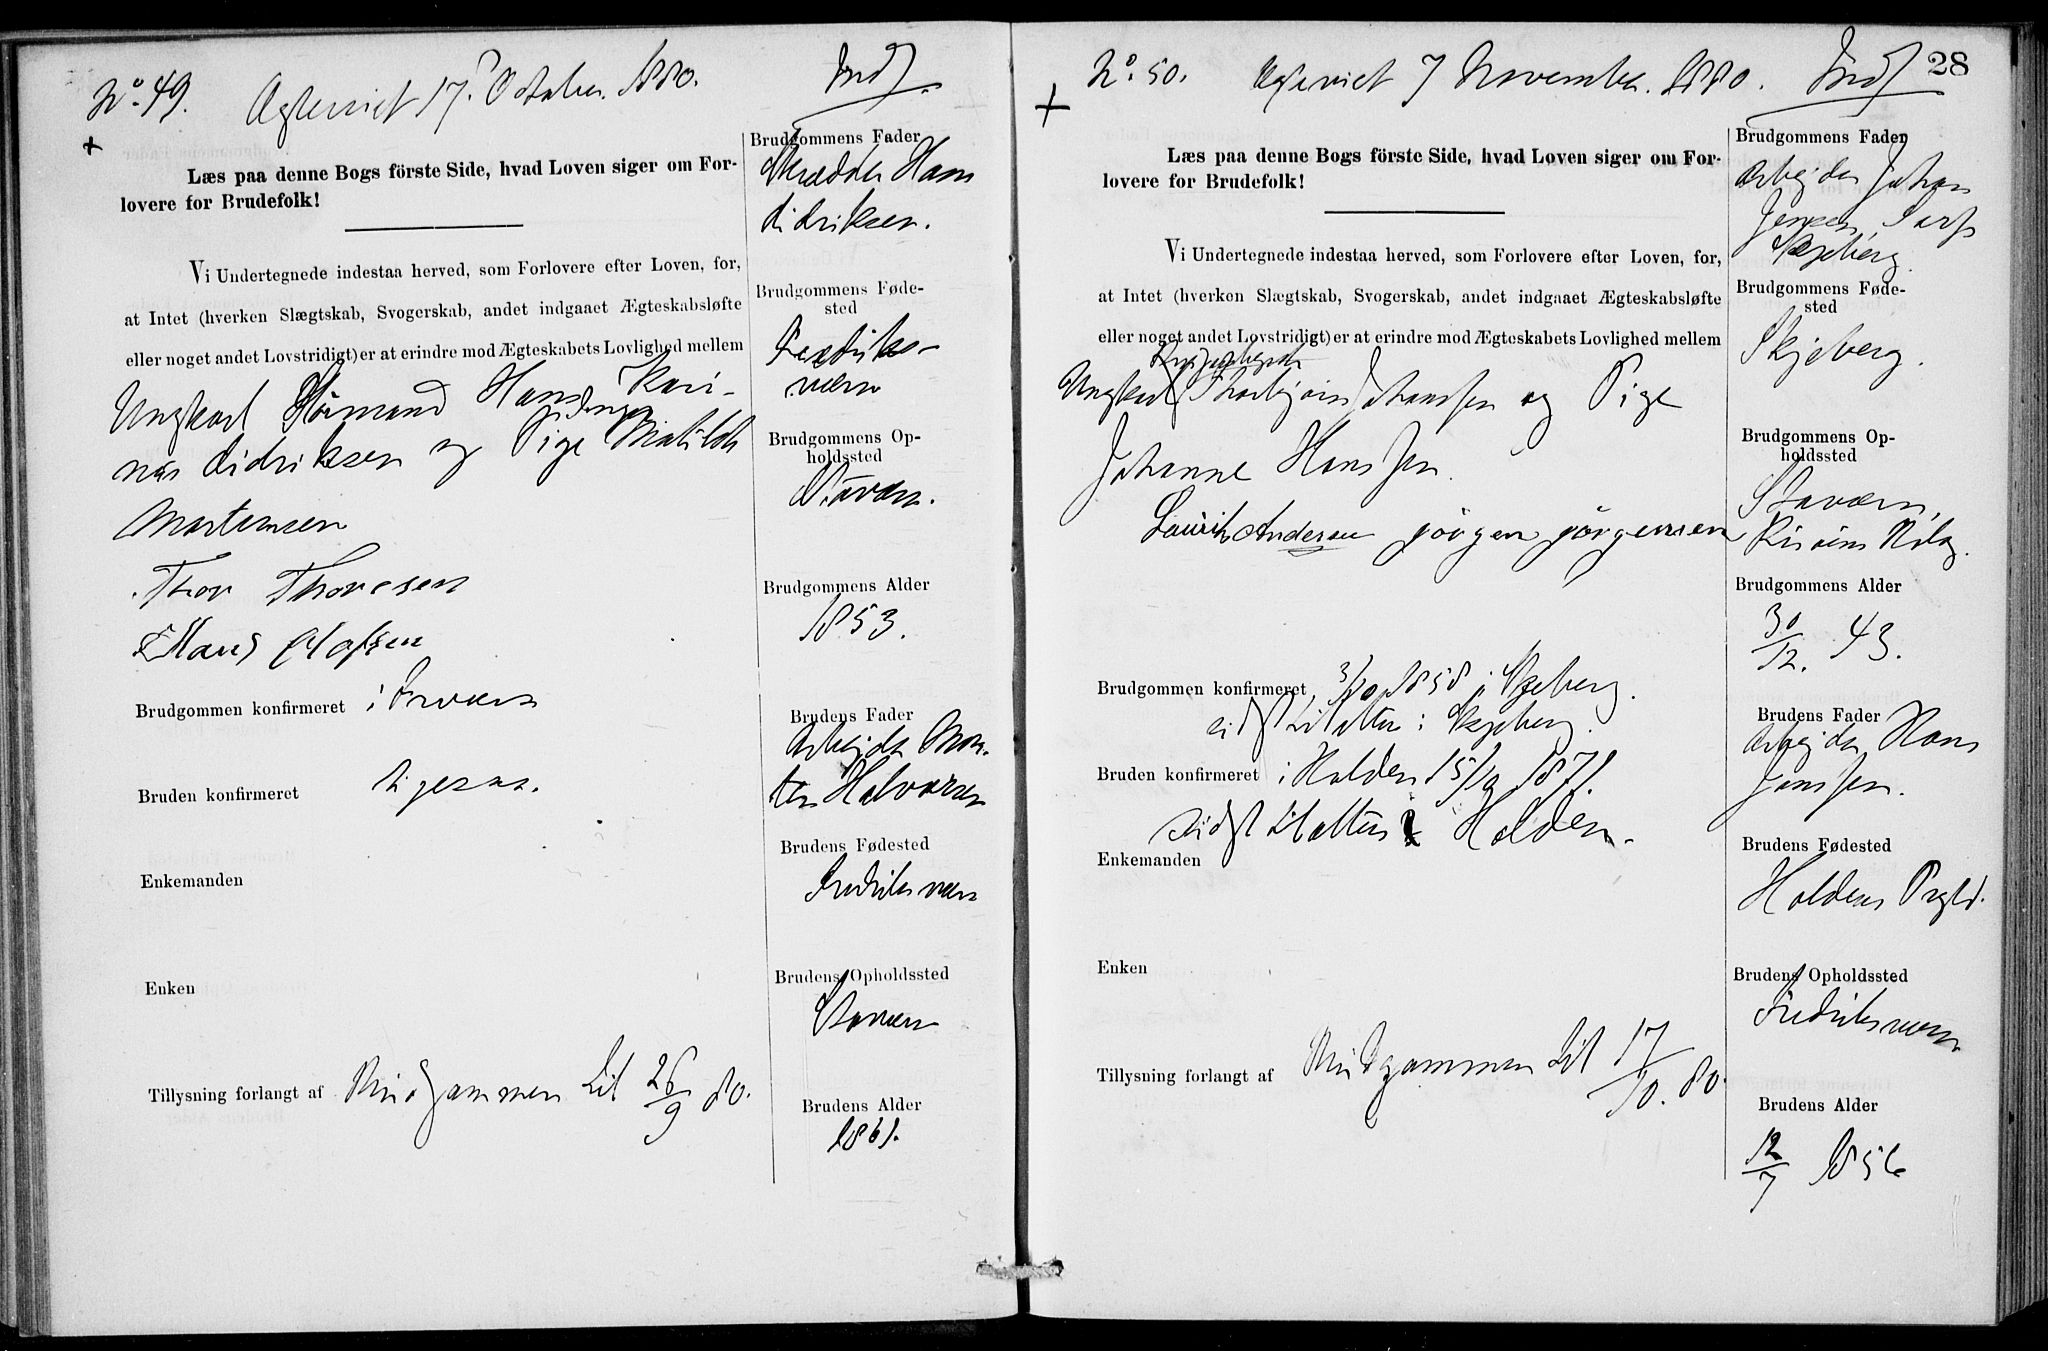 No. 49. Ægteviet 17. October 1880. Indf.
Brudgommens Fader
Læs paa denne Bogs förste Side, hvad Loven siger om For-
lovere for Brudefolk!
Hans
Didriksen.
Vi Undertegnede indestaa herved, som Forlovere efter Loven, for,
at Intet (hverken Slægtskab, Svogerskab, andet indgaaet Ægteskabsløfte
eller noget andet Lovstridigt) er at erindre mod Ægteskabets Lovlighed mellem
Brudgommens Føde-
sted
Fredriks-
værn
Ungkarl Sömand Hans Kari-
nus Didriksen og Pige Matilde
Mortensen
Brudgommens Op-
holdssted
Staværn.
Thor Thoresen
Hans Olafsen
Brudgommens Alder
1853.
Brudgommen konfirmeret i Frværn
Brudens Fader
Arbejder Mor-
ten Halvorsen
Bruden konfirmeret ligesaa.
Brudens Fødested
Fredriksværn
Enkemanden
Enken
Brudens Opholdssted
Staværn
Tillysning forlangt af Brudgommen til 26/9 80.
Brudens Alder
1861.
28
No. 50. Ægteviet 7 November 1880. Indf
Brudgommens Fader
Læs paa denne Bogs förste Side, hvad Loven siger om For-
lovere for Brudefolk!
Arbejder Johan
Jensen,
Skjeberg.
Vi Undertegnede indestaa herved, som Forlovere efter Loven, for,
at Intet (hverken Slægtskab, Svogerskab, andet indgaaet Ægteskabsløfte
eller noget andet Lovstridigt) er at erindre mod Ægteskabets Lovlighed mellem
Brudgommens Føde-
sted
Skjeberg.
Ungkarl Thorbjörn Johanssen og Pige
Johanne Hanssen.
Laurits Andersen jörgen jörgensen
Brudgommens Op-
holdssted
Staværn,
Brudgommens Alder
30/12. 43.
Brudgommen konfirmeret 3/10 1858 i Skjeberg.
sidst til alters i Skjeberg.
Brudens Fader
Arbejder Hans
Janssen.
Bruden konfirmeret i Holden 15/10 1871.
sidst til alters i Holden.
Brudens Fødested
Holdens Prgld.
Enkemanden
Enken
Brudens Opholdssted
Fredriksværn
Tillysning forlangt af Brudgommen til 17/10. 80.
Brudens Alder
12/7 1856